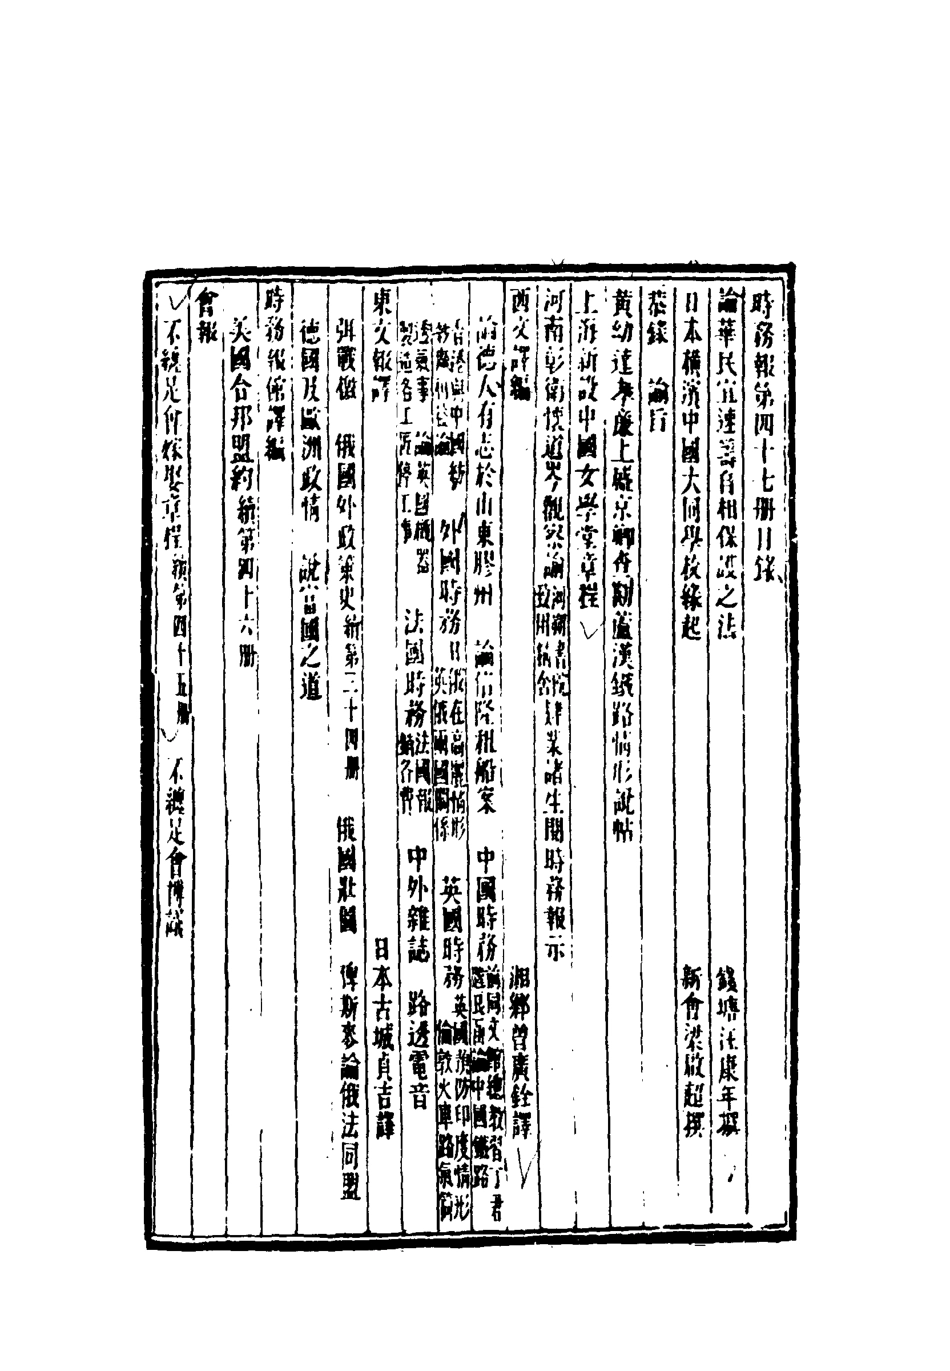 時務報第四十七册目錄
論華民宜速籌自相保護之法 錢塘汪康年撰
日本橫濱中國大同學校緣起 新會梁啟超撰
恭錄 諭旨
黃幼達孝廉上盛京卿查勘蘆漢鐵路情形說帖
上海新設中國女學堂章程
河南彰衛懷道岑觀察諭河朔書院致用精舍肄業諸生閱時務報示
西文譯編 湘鄉曾廣銓譯
論德人有志於山東膠州 論信隆租船案 中國時務前同文館總教習丁君 論中國鐵路
香港與中國 膠州 論 外國時務日報在高麗情形 英俄兩國關係 英國時務英國預防印度情形 倫敦火車路氣筒
透氣事 論英國機器 製造各工 停工事 法國時務法國報 各費 中外雜誌 路透電音
東文報譯 日本古城貞吉譯
弭戰儆 俄國外政策史續第三十四册 俄國壯圖 俾斯麥論俄法同盟
德國及歐洲政情 說富國之道
時務報館譯編
美國合邦盟約續第四十六册
會報
不纏足會嫁娶章程續第四十五册 不纏足會博議